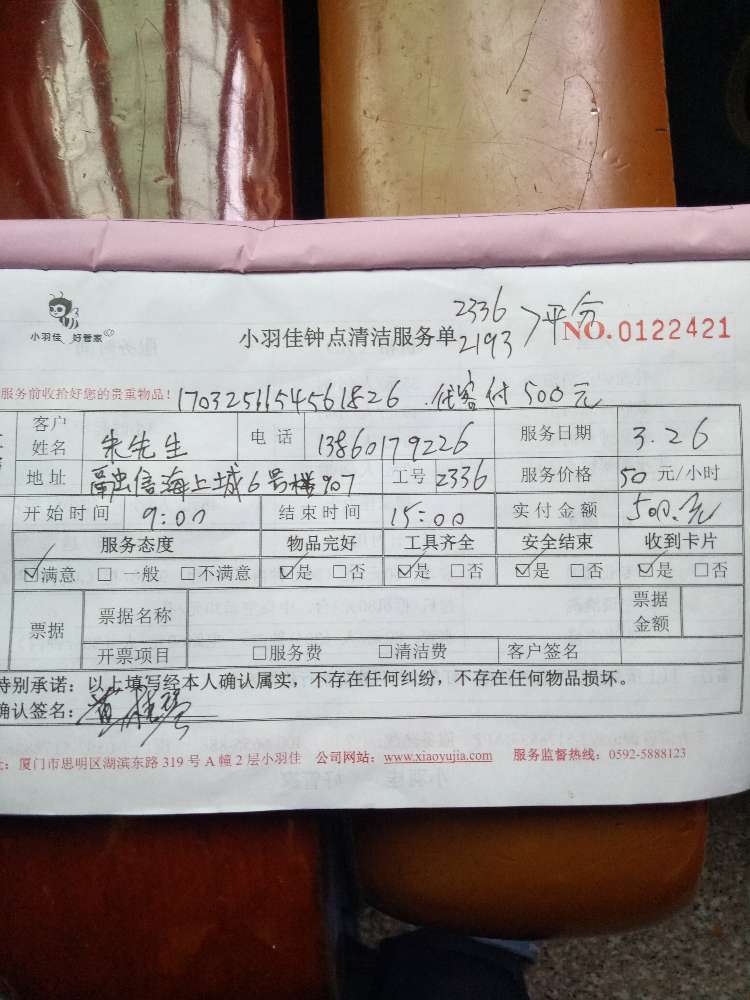 2336
小羽佳 好管家
小羽佳钟点清洁服务单 2193 平分 NO. 0122421
服务前收拾好您的贵重物品! 1703251154561826 付500元
客户姓名 朱先生 电话 13860179226 服务日期 3.26
地址 信海上城6号楼907 工号 2336 服务价格 50 元/小时
开始时间 9:00 结束时间 15:00 实付金额 500.元
服务态度 物品完好 工具齐全 安全结束 收到卡片
☑满意 □一般 □不满意 ☑是 □否 ☑是 □否 ☑是 □否 ☑是 □否
票据 票据名称 票据金额
开票项目 □服务费 □清洁费 客户签名
特别承诺：以上填写经本人确认属实，不存在任何纠纷，不存在任何物品损坏。
确认签名：黄
厦门市思明区湖滨东路 319 号 A 幢 2 层小羽佳 公司网站：www.xiaoyujia.com 服务监督热线：0592-5888123